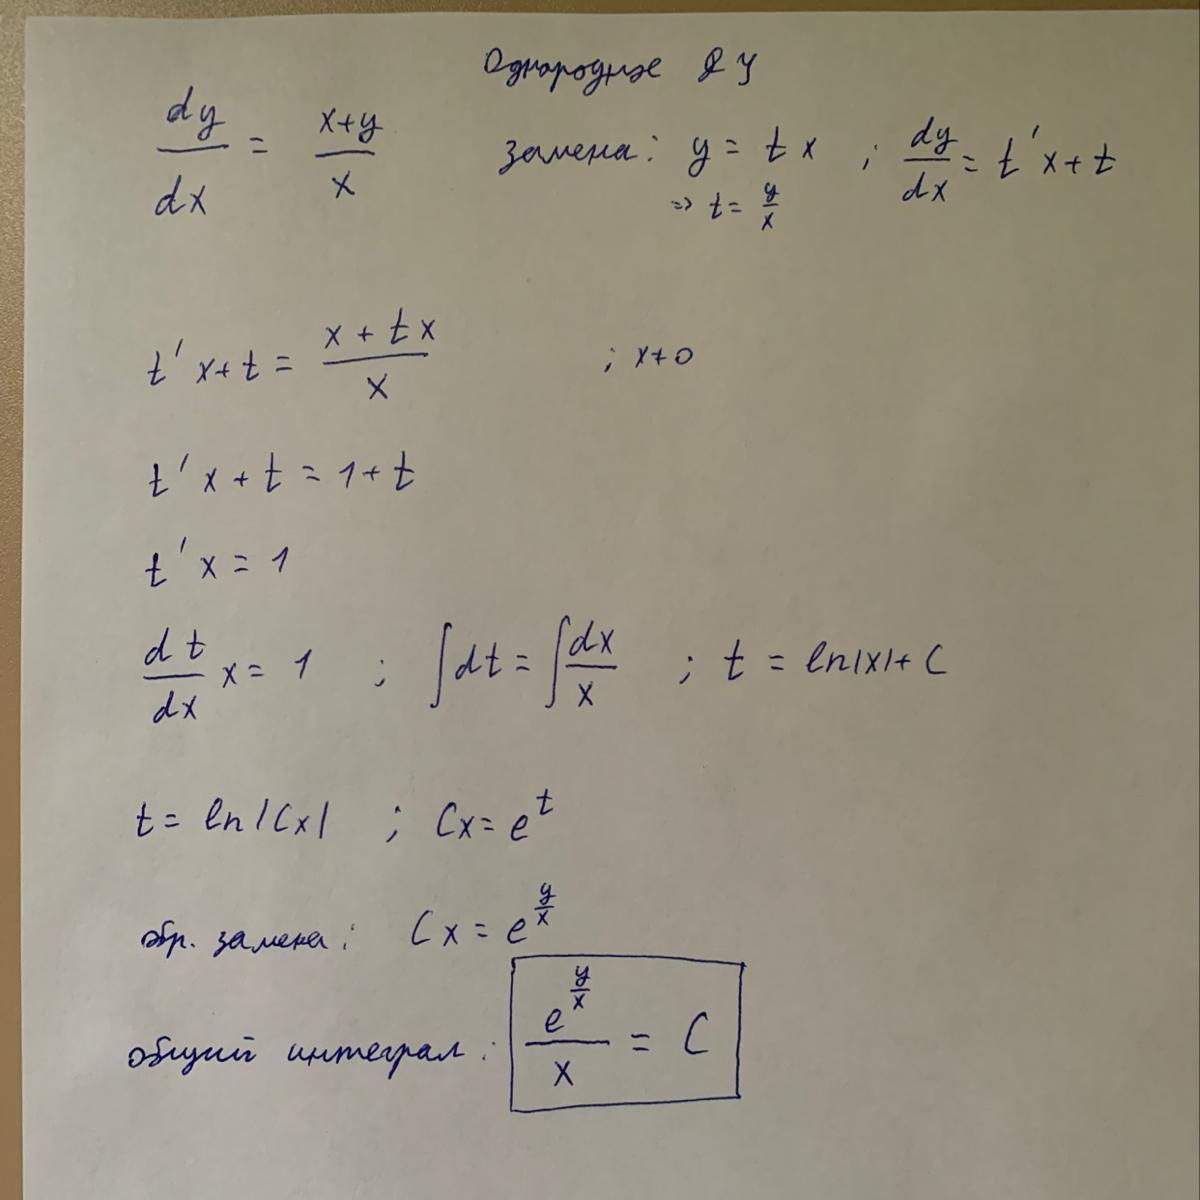 Однородные ДУ
dy/dx = (x+y)/x замена: y = tx ; dy/dx = t'x+t
=> t = y/x
t'x+t = (x+tx)/x ; x≠0
t'x+t = 1+t
t'x = 1
dt/dx x = 1 ; ∫dt = ∫dx/x ; t = ln|x|+C
t = ln|Cx| ; Cx = e^t
обр. замена: Cx = e^(y/x)
общий интеграл: e^(y/x)/x = C